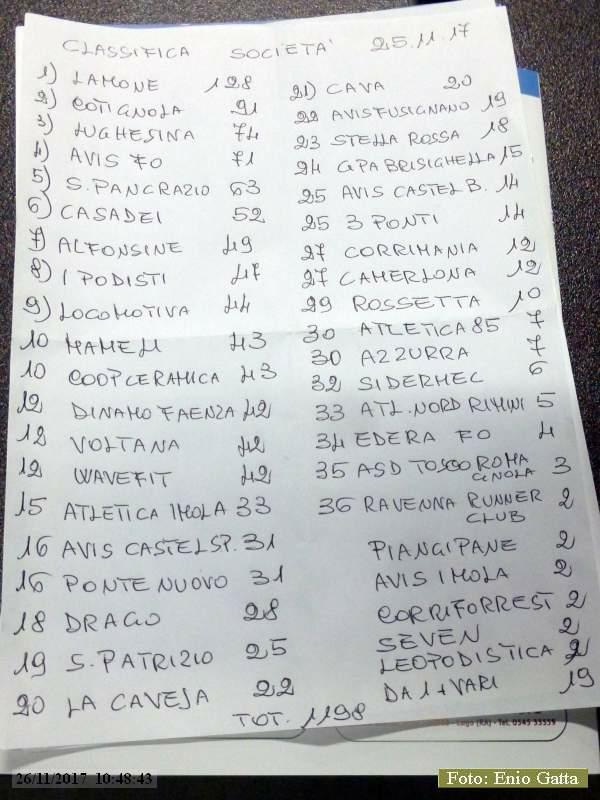 CLASSIFICA SOCIETA' 25.11.17
1) LAMONE 128
2) COTIGNOLA 91
3) LUGHESINA 74
4) AVIS FO 71
5) S. PANCRAZIO 63
6) CASADEI 52
7) ALFONSINE 49
8) I PODISTI 47
9) LOCOMOTIVA 44
10 MAMELI 43
10 COOPCERAMICA 43
12 DINAMO FAENZA 42
12 VOLTANA 42
12 WAVEFIT 42
15 ATLETICA IMOLA 33
16 AVIS CASTEL SP. 31
16 PONTE NUOVO 31
18 DRAGO 28
19 S. PATRIZIO 25
20 LA CAVEJA 22
21) CAVA 20
22 AVIS FUSIGNANO 19
23 STELLA ROSSA 18
24 GPA BRISIGHELLA 15
25 AVIS CASTEL B. 14
25 3 PONTI 14
27 CORRIMANIA 12
27 CAMERLONA 12
29 ROSSETTA 10
30 ATLETICA 85 7
30 AZZURRA 7
32 SIDERMEC 6
33 ATL. NORD RIMINI 5
34 EDERA FO 4
35 ASD TOSCO ROMA
GNOLA 3
36 RAVENNA RUNNER 2
CLUB
PIANGIPANE 2
AVIS IMOLA 2
CORRIFORREST 2
SEVEN 2
LEOPODISTICA 2
DA 1 + VARI 19
TOT. 1198
Lugo (RA) - Tel. 0545 33339
26/11/2017 10:48:43
Foto: Enio Gatta